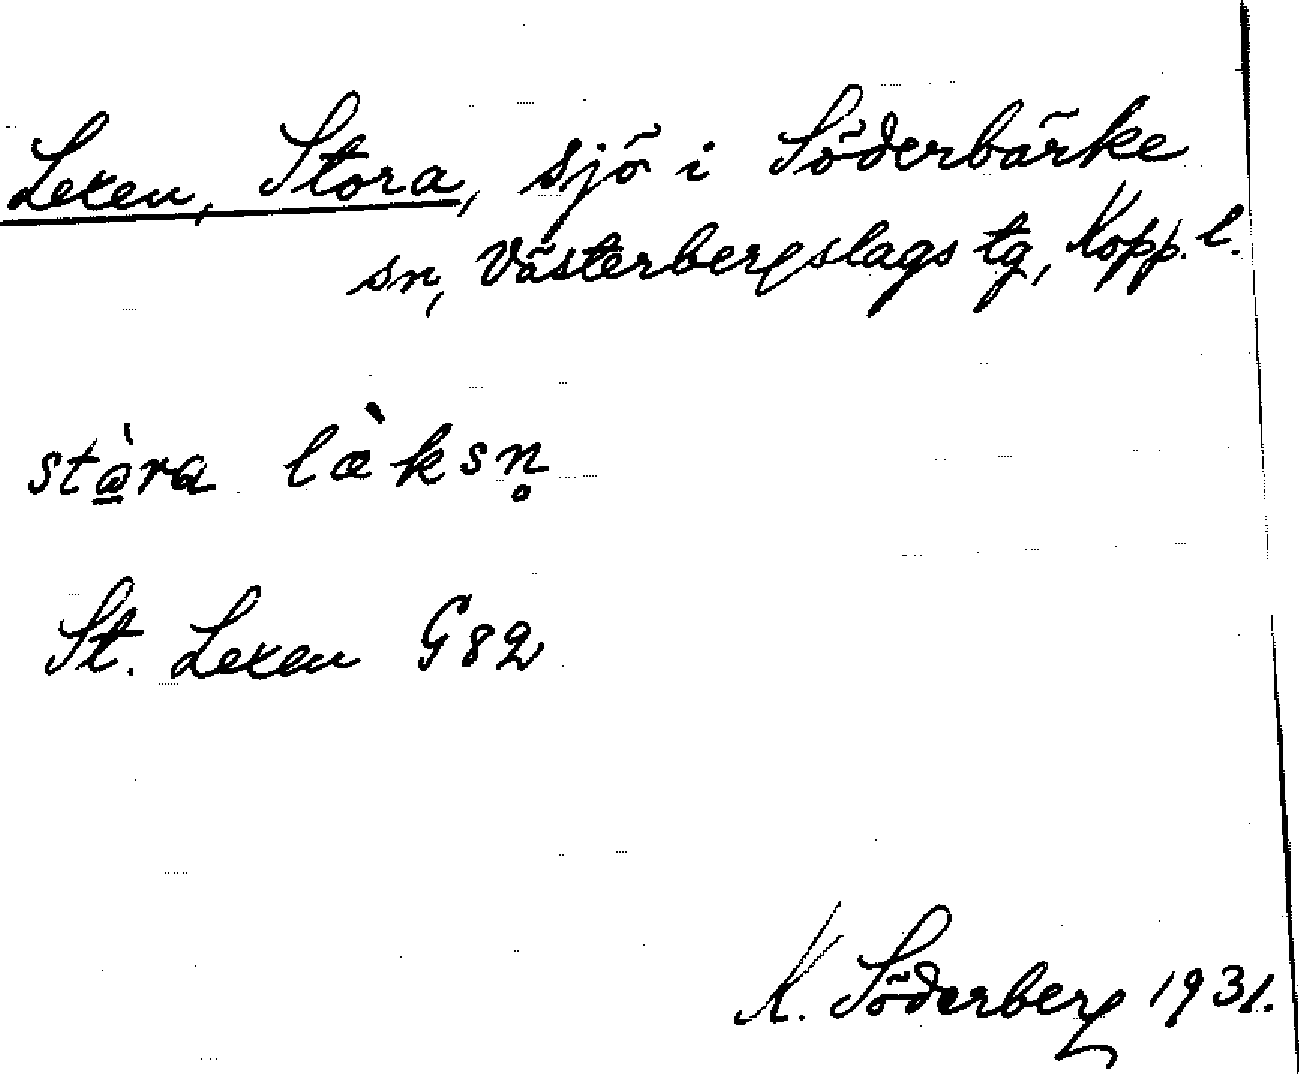 Lexen, Stora, sjö i Söderbärke
sn, Västerbergslags tg, Kopp. l.
stɑ̠̀ra læ̀ksn̥
St. Lexen G82
K. Söderberg 1931.